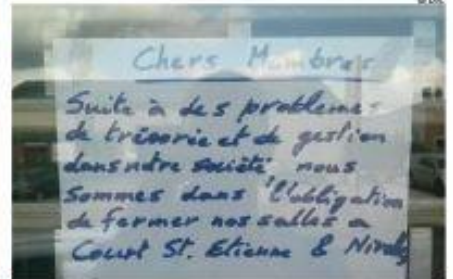 Chers Membres
Suite à des problemes
de trésorie et de gestion
dans notre société nous
sommes dans l'obligation
de fermer nos salles a
Court St. Etienne &